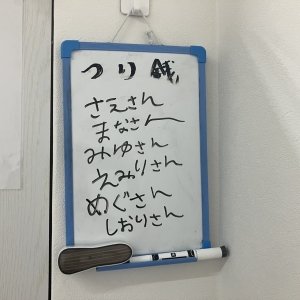 つり銭
さえさん
まなさん
みゆさん
えみりさん
めぐさん
しおりさん